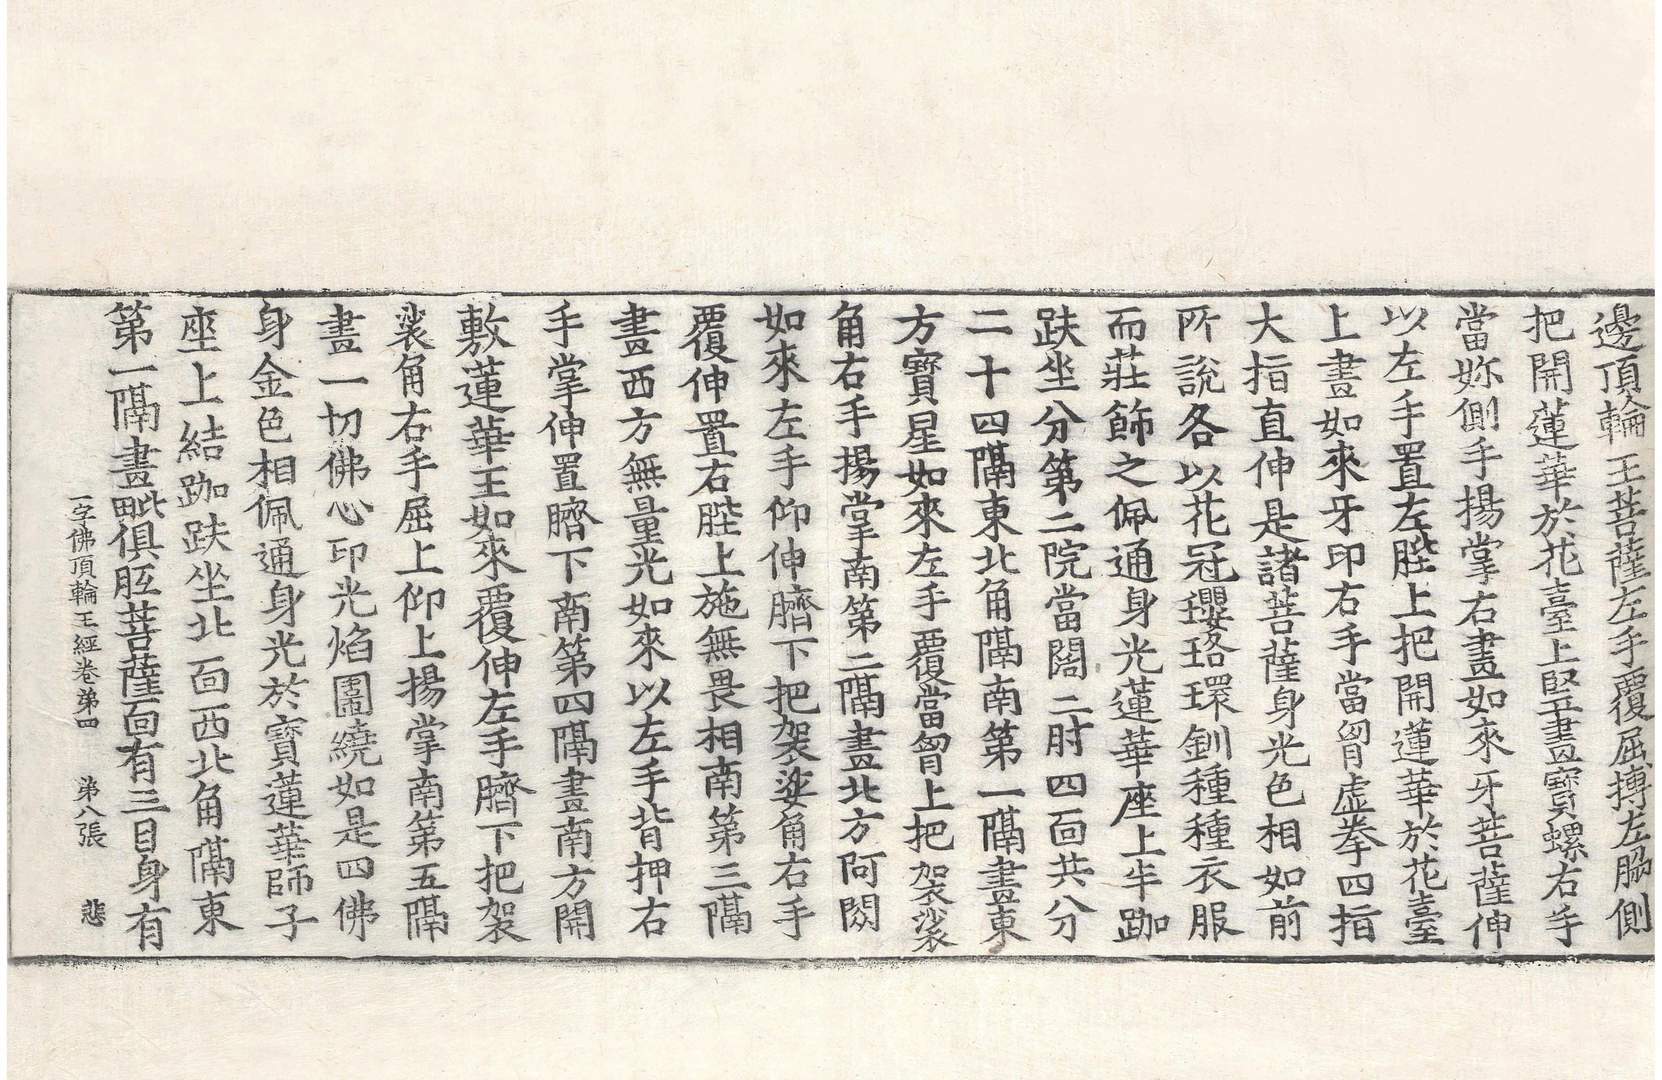 邊頂輪王菩薩左手覆屈搏左脇側
把開蓮華於花臺上竪畫寶螺右手
當妳側手揚掌右畫如來牙菩薩伸
以左手置左䏶上把開蓮華於花臺
上畫如來牙印右手當胷虛拳四指
大指直伸是諸菩薩身光色相如前
所說各以花冠瓔珞環釧種種衣服
而莊飾之佩通身光蓮華座上半跏
趺坐分第二院當闊二肘四面共分
二十四隔東北角隔南第一隔畫東
方寶星如來左手覆當胷上把袈裟
角右手揚掌南第二隔畫北方阿閦
如來左手仰伸臍下把袈裟角右手
覆伸置右䏶上施無畏相南第三隔
畫西方無量光如來以左手背押右
手掌伸置臍下南第四隔畫南方開
敷蓮華王如來覆伸左手臍下把袈
裟角右手屈上仰上揚掌南第五隔
畫一切佛心印光焰圍繞如是四佛
身金色相佩通身光於寶蓮華師子
座上結跏趺坐北面西北角隔東
第一隔畫毗俱胝菩薩面有三目身有
一字佛頂輪王經卷第四　第八張　悲